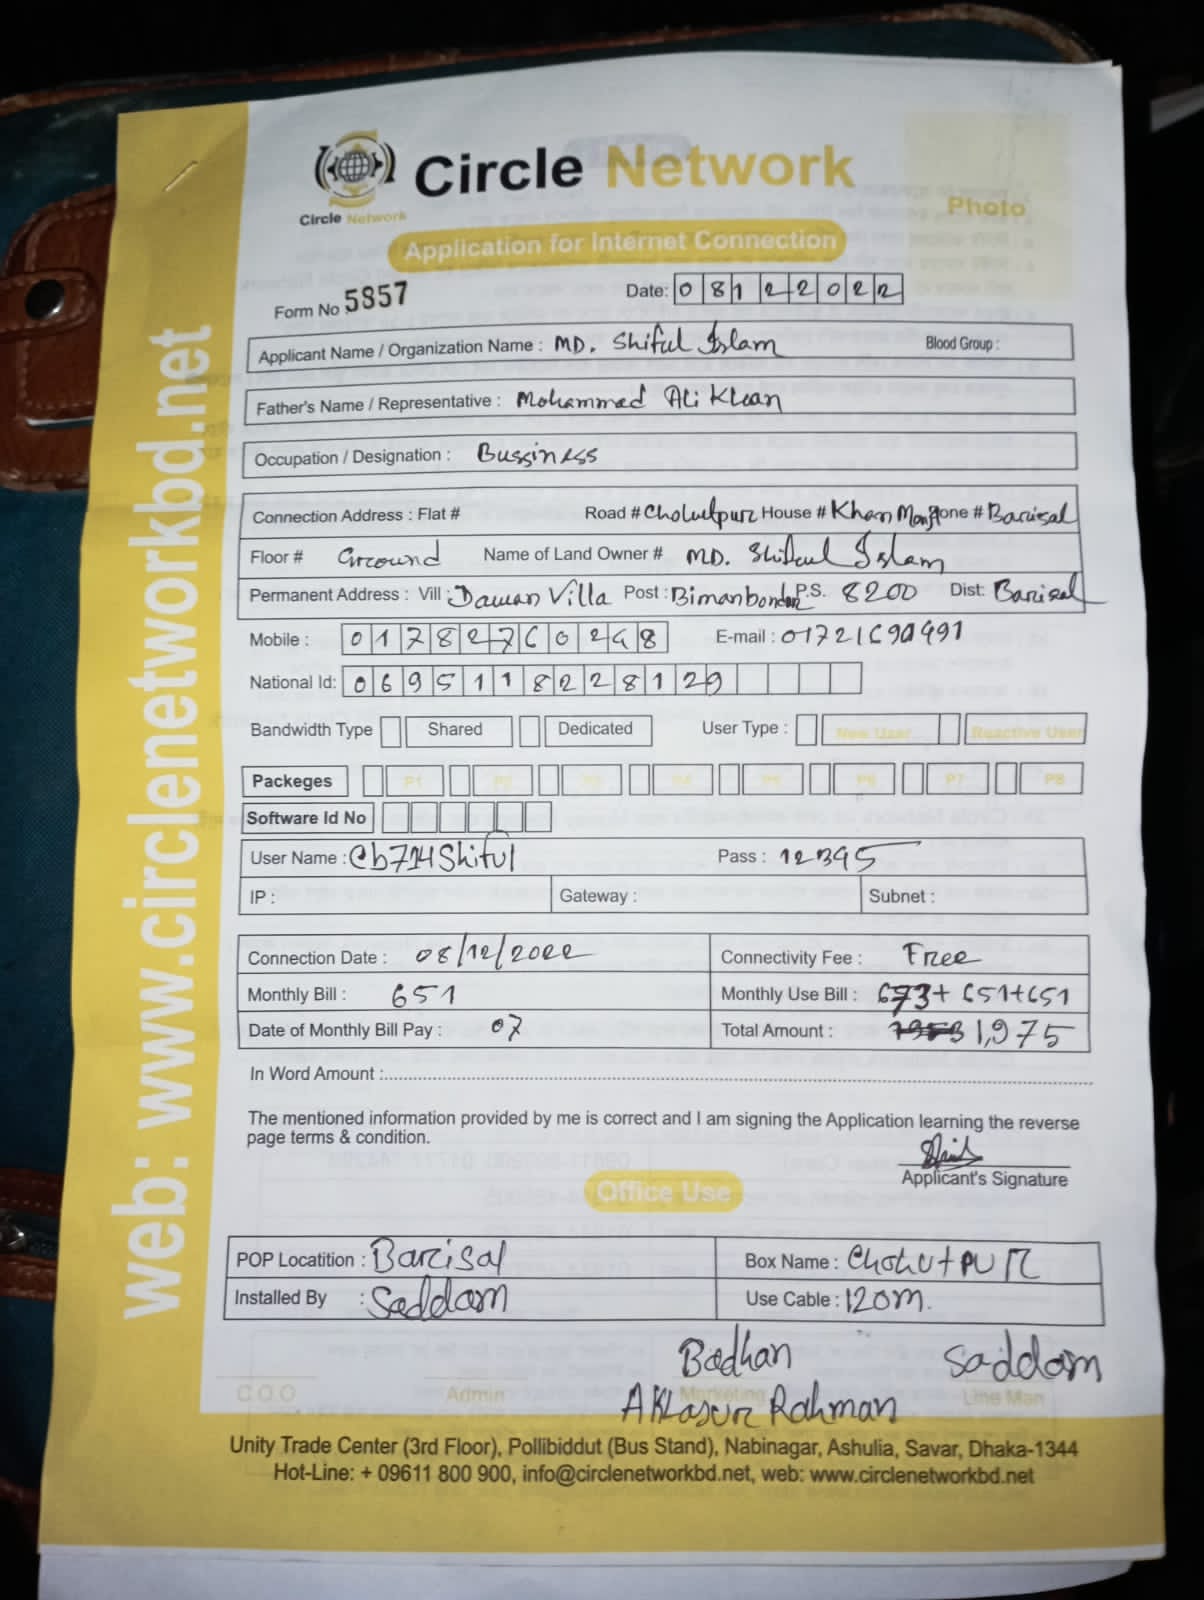 Circle Network
Circle Network
Photo
Application for Internet Connection
Form No 5857
Date: 08122022
Applicant Name / Organization Name : MD. Shiful Islam Blood Group :
Father's Name / Representative : Mohammad Ali Khan
Occupation / Designation : Bussiness
Connection Address : Flat # Road # House # Khan # Barisal
Floor # Ground Name of Land Owner # MD. Shiful Islam
Permanent Address : Vill : Villa Post : Bimanbondar P.S. 8200 Dist: Barisal
Mobile : 01782760248 E-mail : 01721690491
National Id: 0695118228129
Bandwidth Type Shared Dedicated User Type : New User Reactive User
Packeges P1 P2 P3 P4 P5 P6 P7 P8
Software Id No
User Name : Cb714Shiful Pass : 12345
IP : Gateway : Subnet :
Connection Date : 08/12/2022 Connectivity Fee : Free
Monthly Bill : 651 Monthly Use Bill : 673+ 651+651
Date of Monthly Bill Pay : 07 Total Amount : 1,975
In Word Amount :
The mentioned information provided by me is correct and I am signing the Application learning the reverse
page terms & condition.
Applicant's Signature
Office Use
POP Locatition : Barisal Box Name : ChohutpUR
Installed By : Saddam Use Cable : 120m.
Badhan Saddam
C.O.O Admin Marketing Line Man
Rahman
Unity Trade Center (3rd Floor), Pollibiddut (Bus Stand), Nabinagar, Ashulia, Savar, Dhaka-1344
Hot-Line: + 09611 800 900, info@circlenetworkbd.net, web: www.circlenetworkbd.net
web: www.circlenetworkbd.net